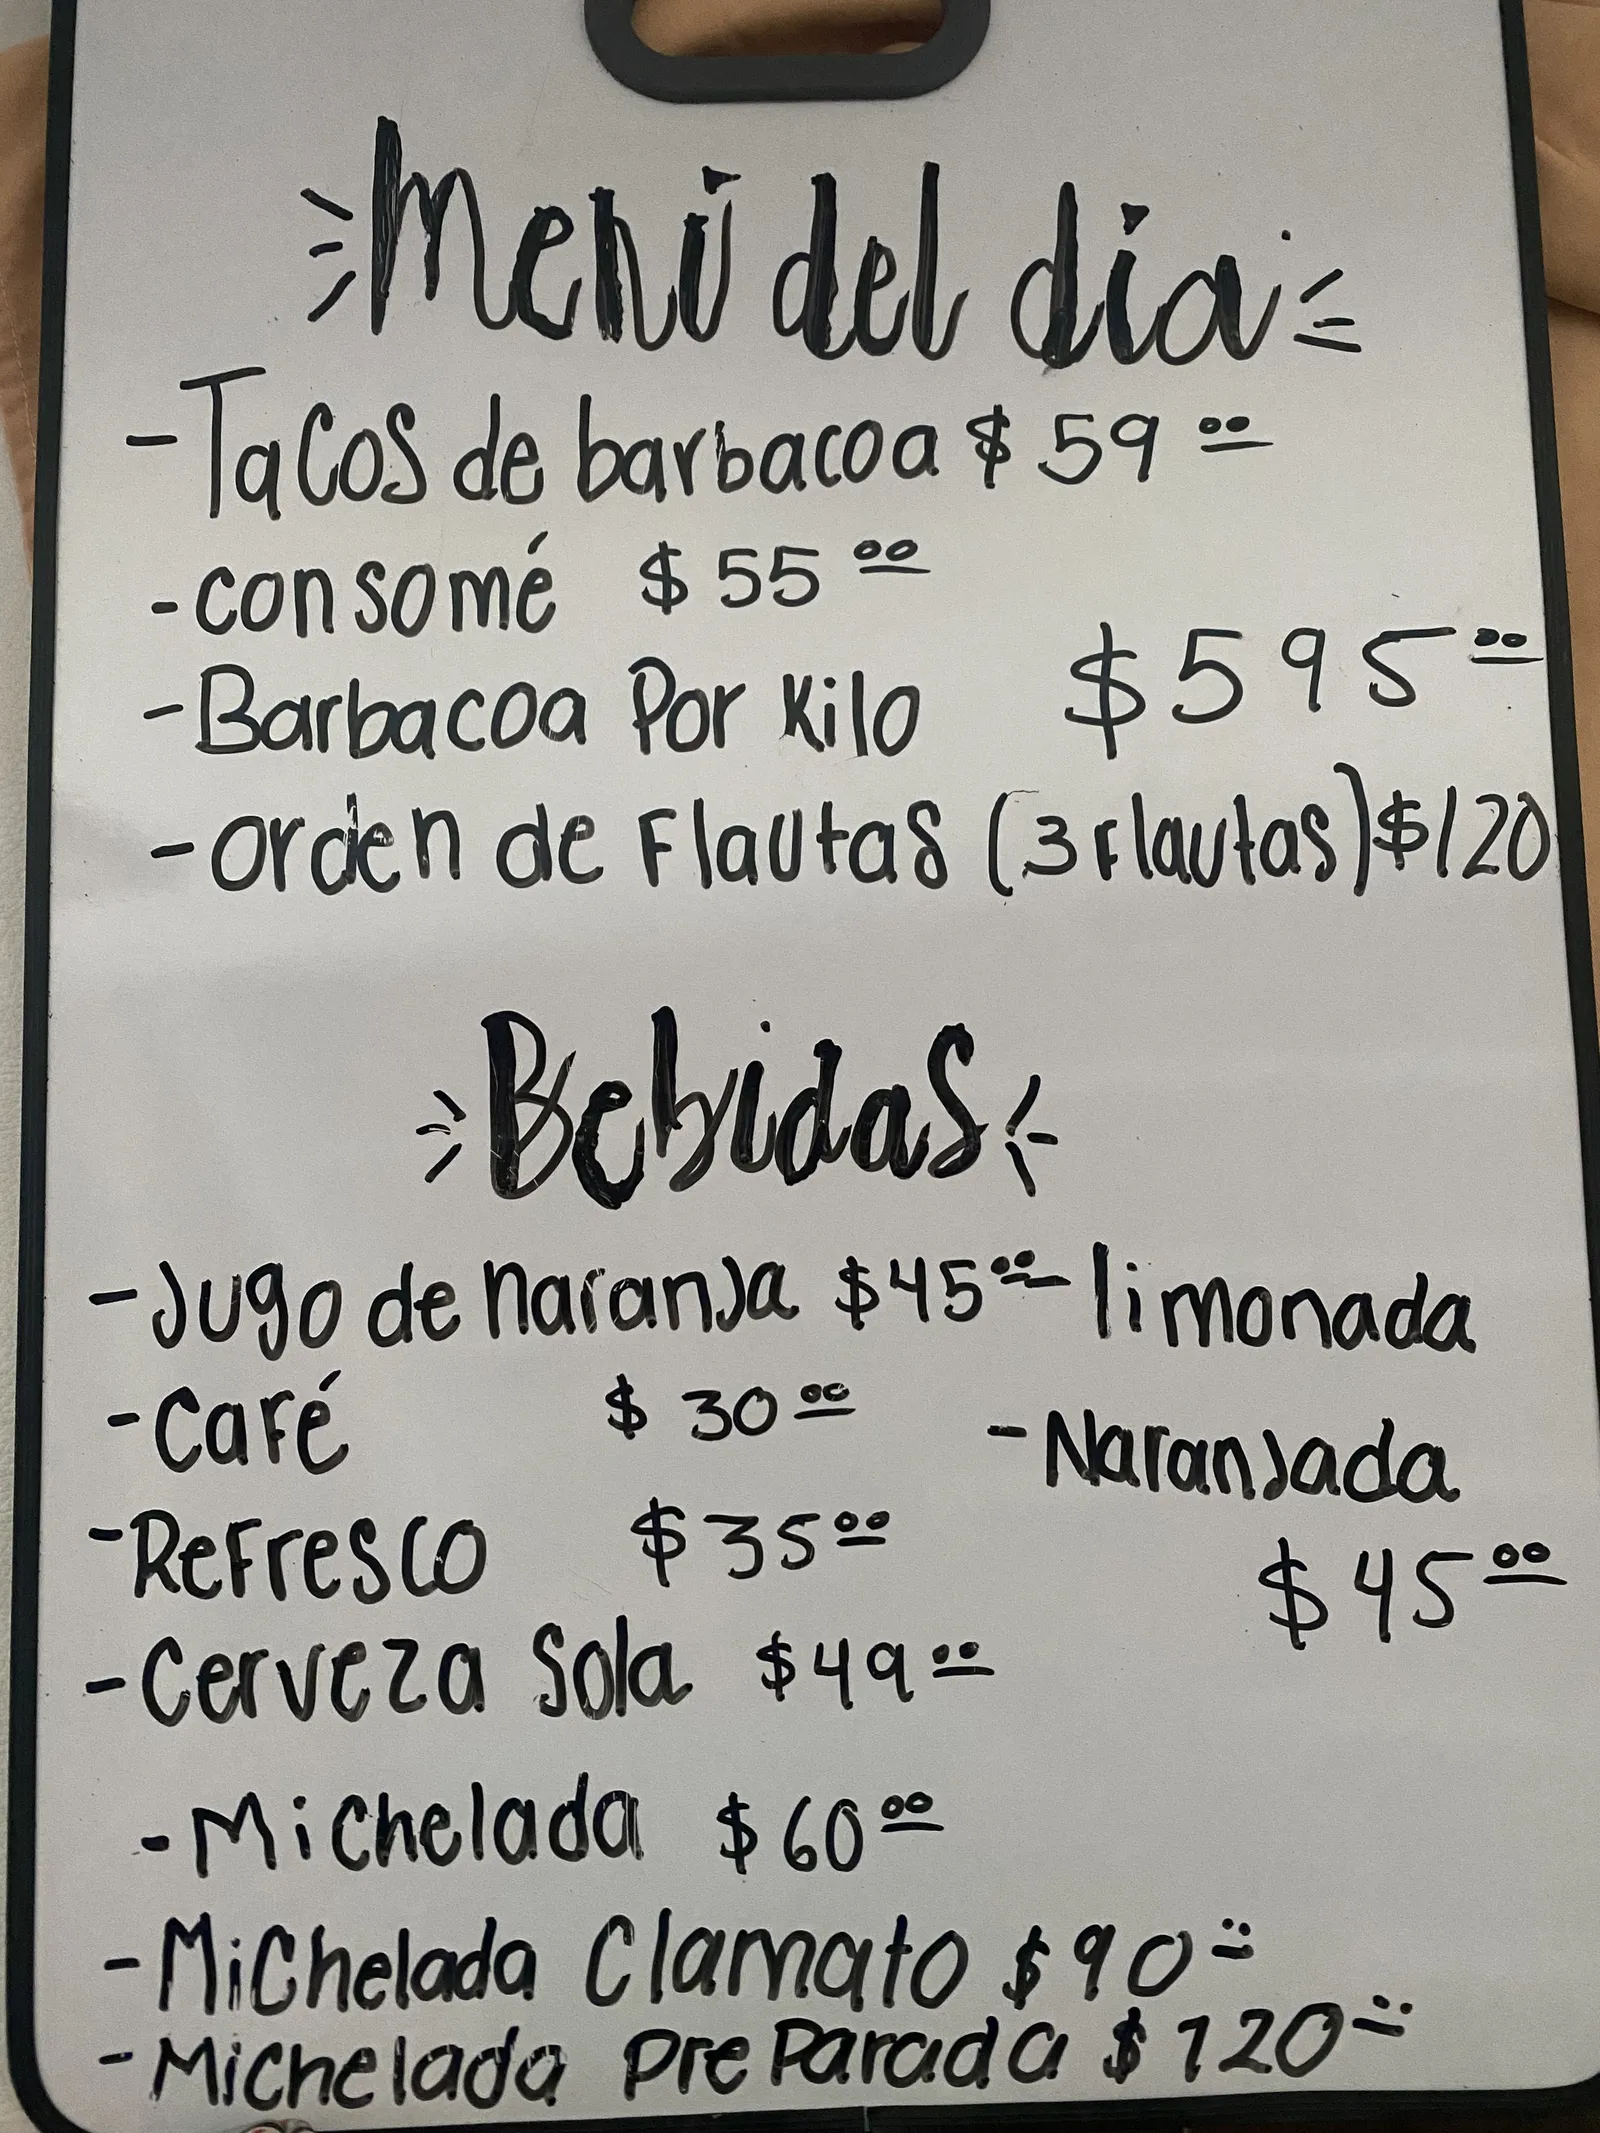 Menú del día
- Tacos de barbacoa $ 59 00
- consomé $ 55 00
- Barbacoa Por Kilo $ 595 00
- orden de Flautas (3 Flautas) $120
Bebidas
- Jugo de naranja $45 00 - limonada
- Café $ 30 00
- Naranjada
- Refresco $ 35 00
$ 45 00
- Cerveza Sola $49 00
- Michelada $60 00
- Michelada Clamato $90 00
- Michelada PreParada $120 00